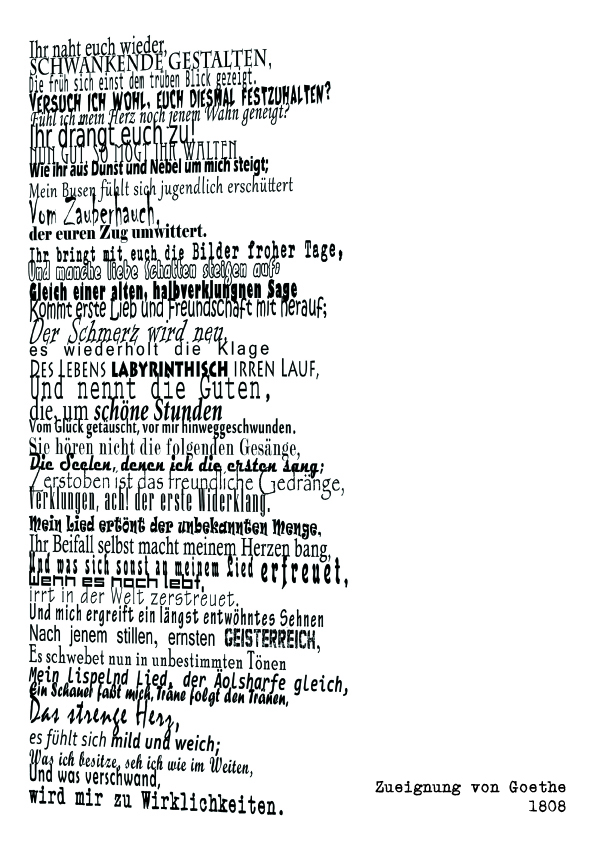 Ihr naht euch wieder,
SCHWANKENDE GESTALTEN,
Die früh sich einst dem trüben Blick gezeigt.
VERSUCH ICH WOHL, EUCH DIESMAL FESTZUHALTEN?
Fühl ich mein Herz noch jenem Wahn geneigt?
Ihr drängt euch zu!
NUN GUT, SO MÖGT IHR WALTEN,
Wie ihr aus Dunst und Nebel um mich steigt;
Mein Busen fühlt sich jugendlich erschüttert
Vom Zauberhauch,
der euren Zug umwittert.
Ihr bringt mit euch die Bilder froher Tage,
Und manche liebe Schatten steigen auf;
Gleich einer alten, halbverklungnen Sage
Kommt erste Lieb und Freundschaft mit herauf;
Der Schmerz wird neu,
es wiederholt die Klage
DES LEBENS LABYRINTHISCH IRREN LAUF,
Und nennt die Guten,
die, um schöne Stunden
Vom Glück getäuscht, vor mir hinweggeschwunden.
Sie hören nicht die folgenden Gesänge,
Die Seelen, denen ich die ersten sang;
Zerstoben ist das freundliche Gedränge,
Verklungen, ach! der erste Widerklang.
Mein Lied ertönt der unbekannten Menge,
Ihr Beifall selbst macht meinem Herzen bang,
Und was sich sonst an meinem Lied erfreuet,
Wenn es noch lebt,
irrt in der Welt zerstreuet.
Und mich ergreift ein längst entwöhntes Sehnen
Nach jenem stillen, ernsten GEISTERREICH,
Es schwebet nun in unbestimmten Tönen
Mein lispelnd Lied, der Äolsharfe gleich,
Ein Schauer faßt mich, Träne folgt den Tränen,
Das strenge Herz,
es fühlt sich mild und weich;
Was ich besitze, seh ich wie im Weiten,
Und was verschwand,
wird mir zu Wirklichkeiten.
Zueignung von Goethe
1808